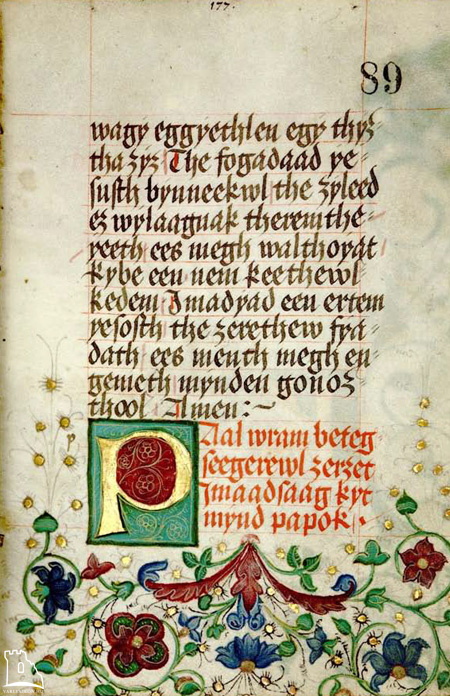 177.
89
wagy eggyethlen egy thyz
tha zyz The fogadaad ye-
susth bynneekwl the zyleed
ez wylaagnak theremthe-
yeeth ees megh walthoyat
kybe een nem keethewl-
kedem Imadyad een ertem
yesosth the zerethew fya-
dath ees menth megh en-
gemeth mynden gonoz-
thool Amen:~
Paal wram beteg
seegerewl zerzet
Imaadsaag kyt
mynd papok.